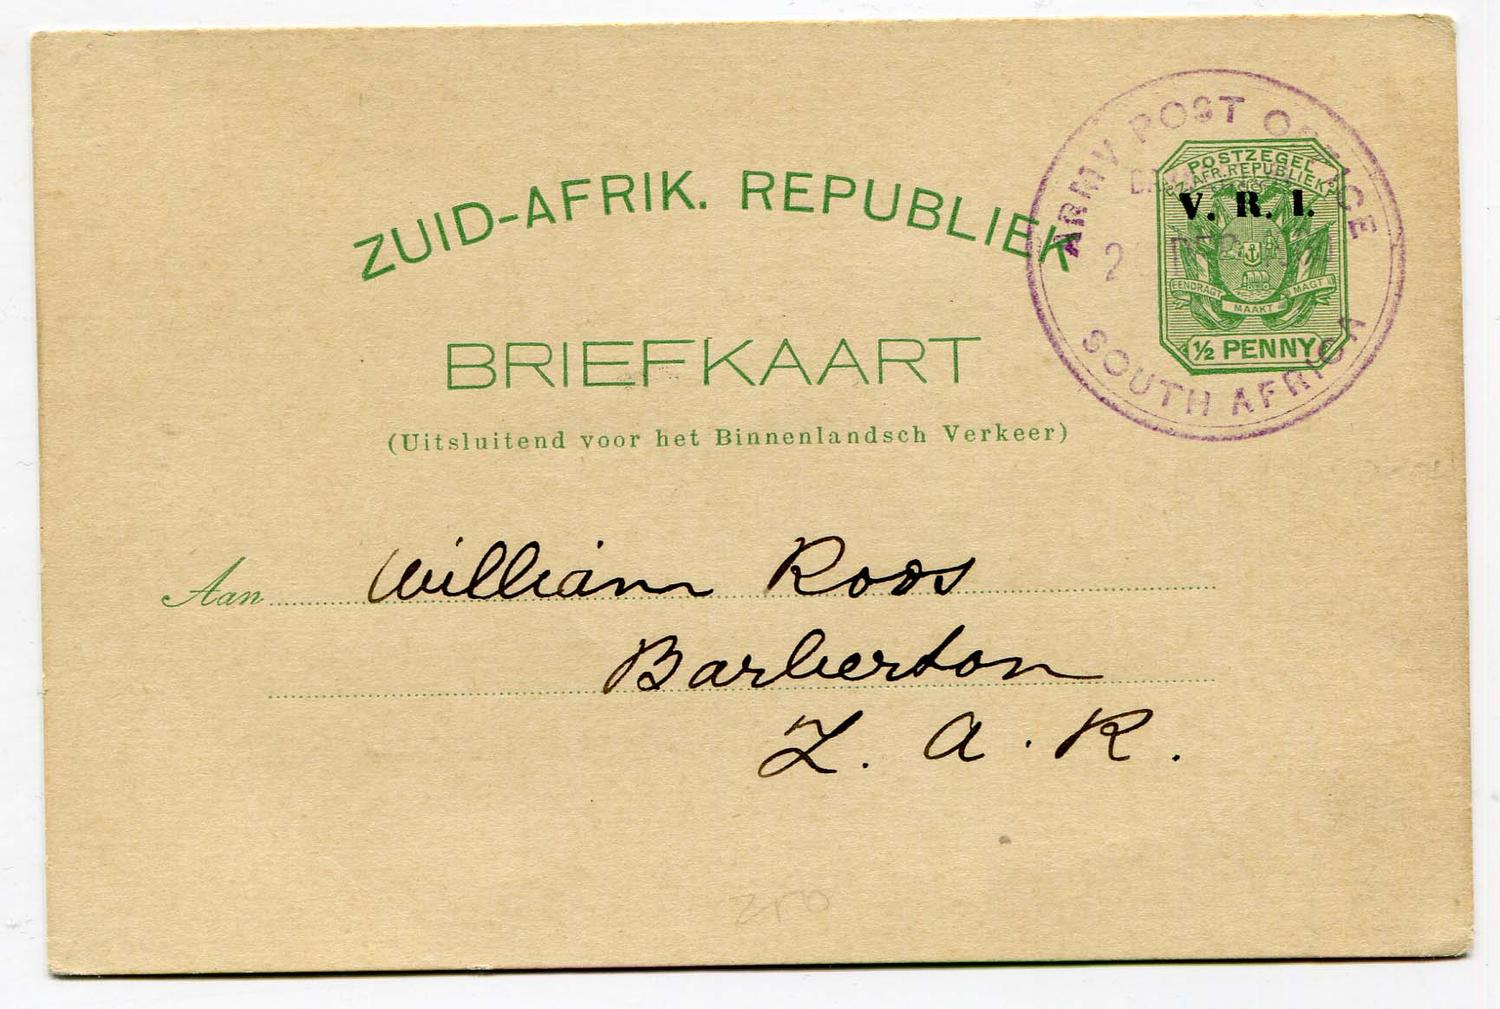 ZUID-AFRIK. REPUBLIEK
BRIEFKAART
(Uitsluitend voor het Binnenlandsch Verkeer)
ARMY POST OFFICE
SOUTH AFRICA
POSTZEGEL
Z. AFR. REPUBLIEK
V. R. I.
EENDRAGT MAAKT MAGT
½ PENNY
Aan William Roos
Barberton
Z. A. R.